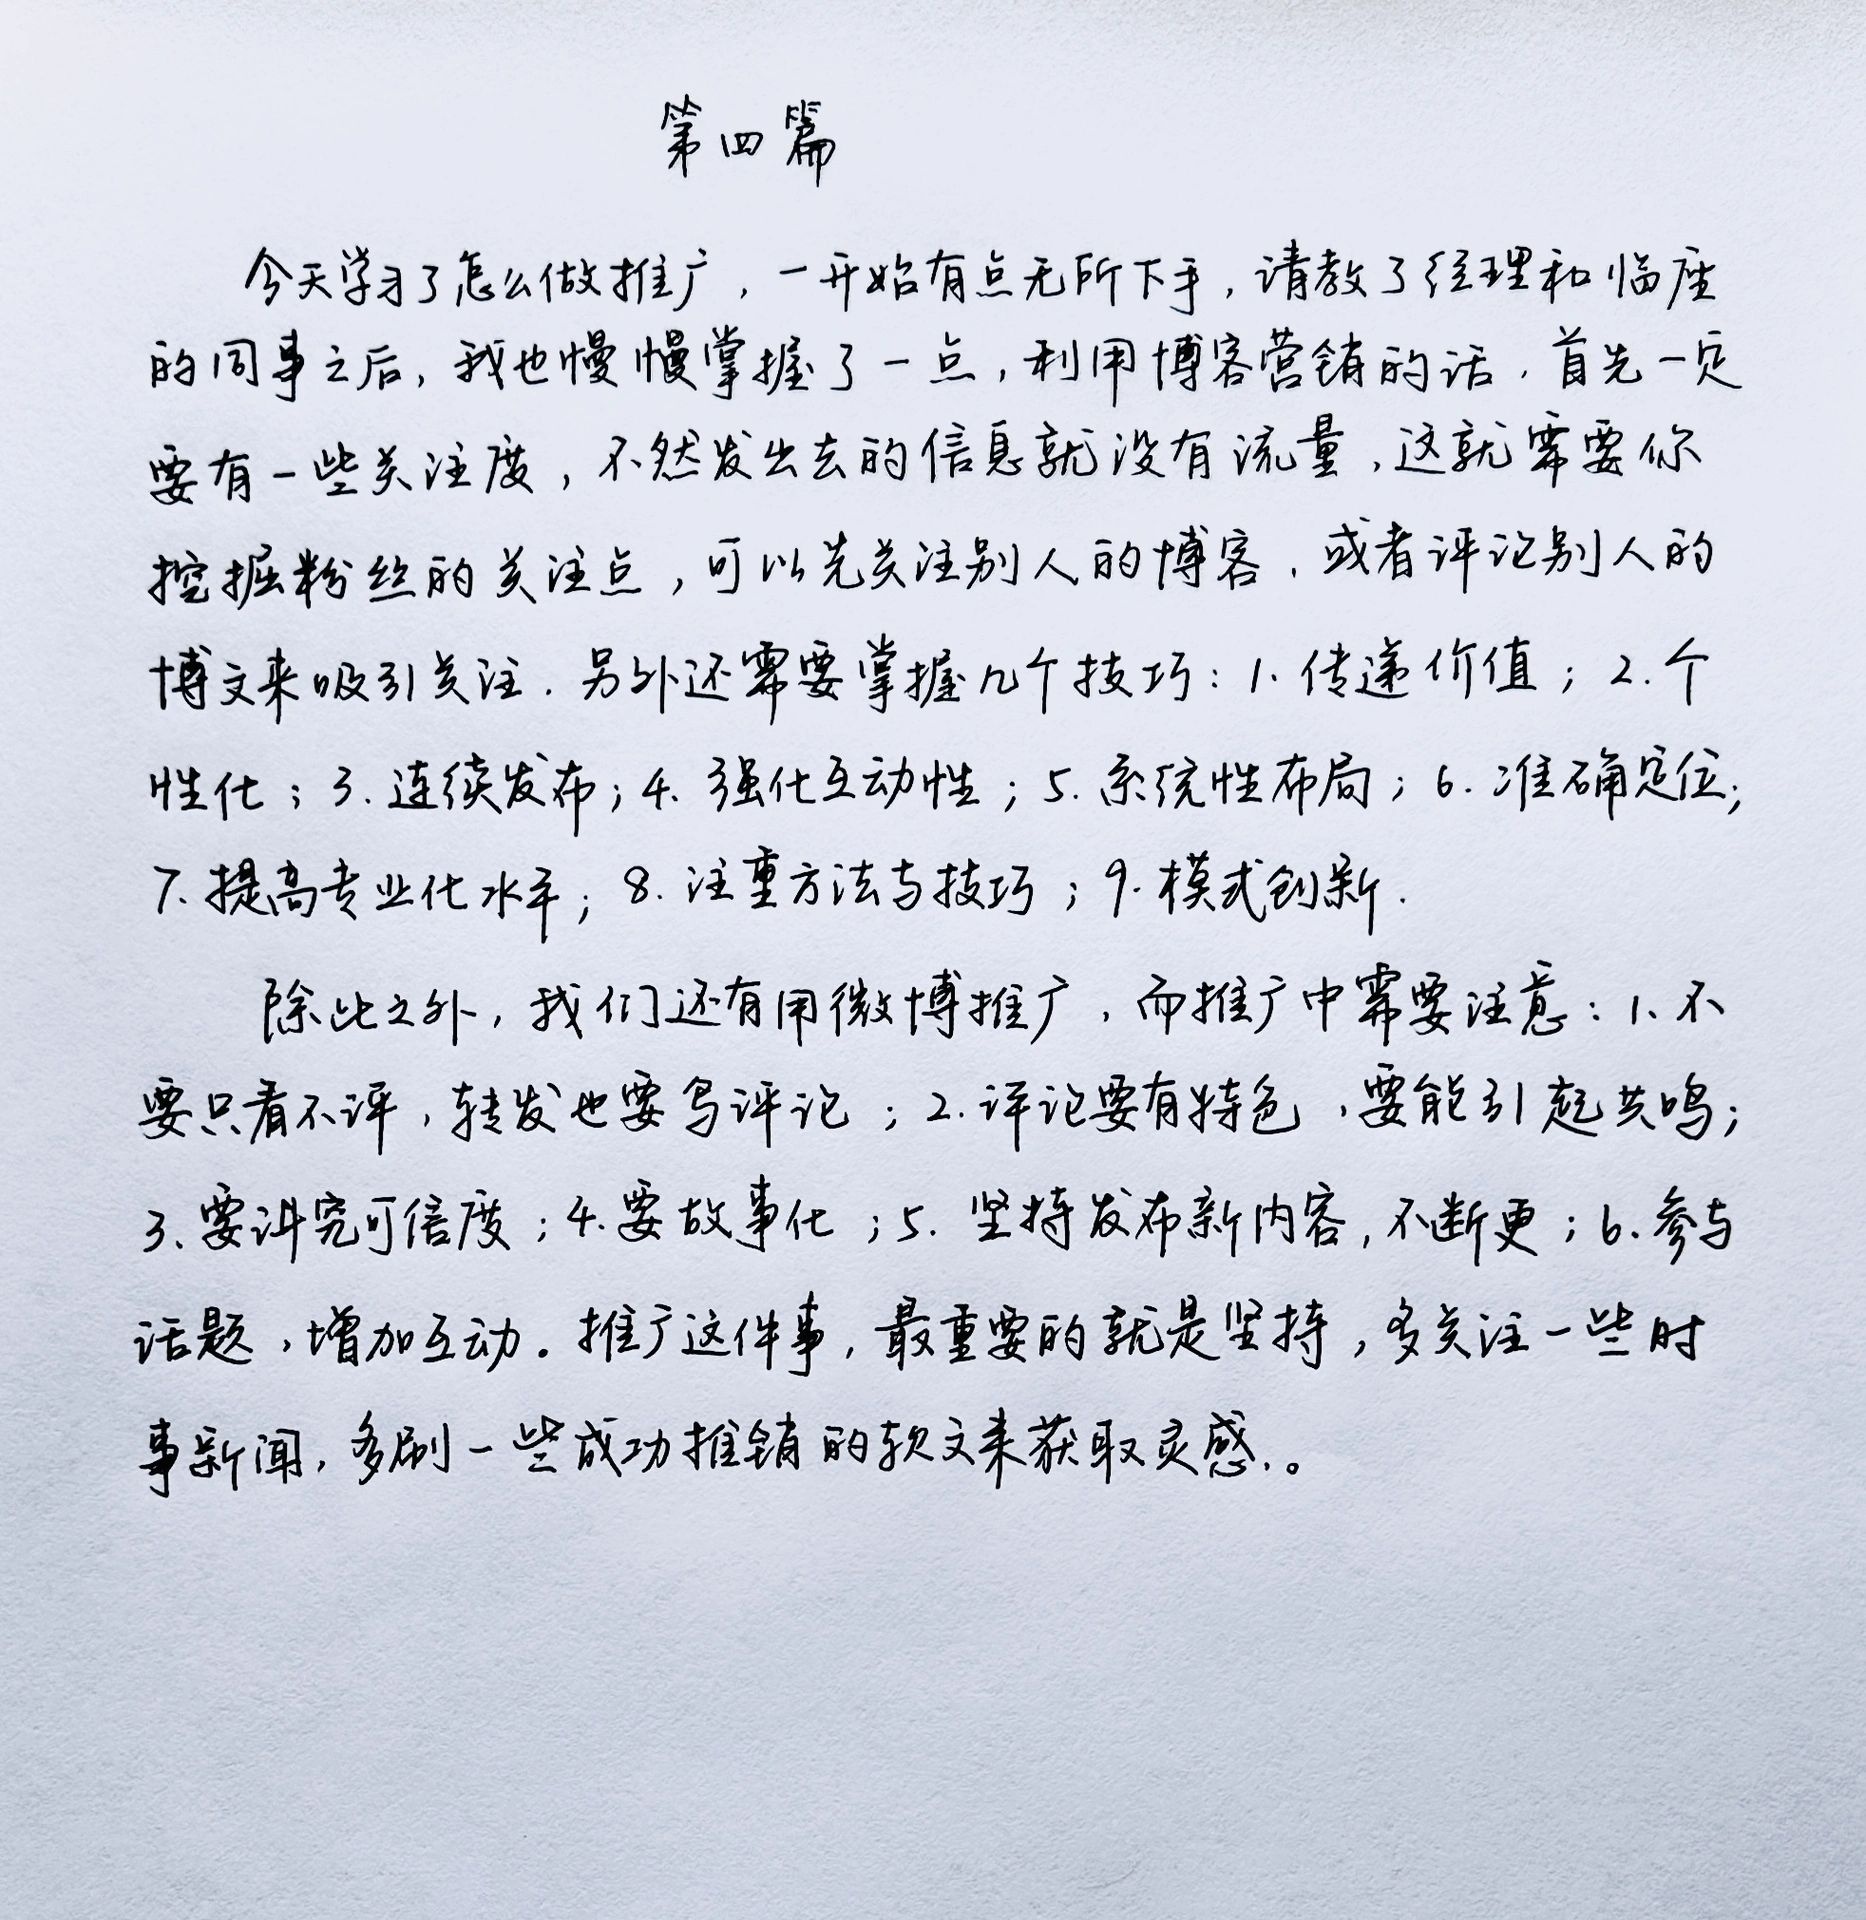 第四篇
今天学习了怎么做推广，一开始有点无所下手，请教了经理和临座
的同事之后，我也慢慢掌握了一点，利用博客营销的话，首先一定
要有一些关注度，不然发出去的信息就没有流量，这就需要你
挖掘粉丝的关注点，可以先关注别人的博客，或者评论别人的
博文来吸引关注．另外还需要掌握几个技巧：1．传递价值；2．个
性化；3．连续发布；4．强化互动性；5．系统性布局；6．准确定位；
7．提高专业化水平；8．注重方法与技巧；9．模式创新．
除此之外，我们还有用微博推广，而推广中需要注意：1．不
要只看不评，转发也要写评论；2．评论要有特色，要能引起共鸣；
3、要讲究可信度；4．要故事化；5．坚持发布新内容，不断更；6．参与
话题，增加互动。推广这件事，最重要的就是坚持，多关注一些时
事新闻，多刷一些成功推销的软文来获取灵感．。